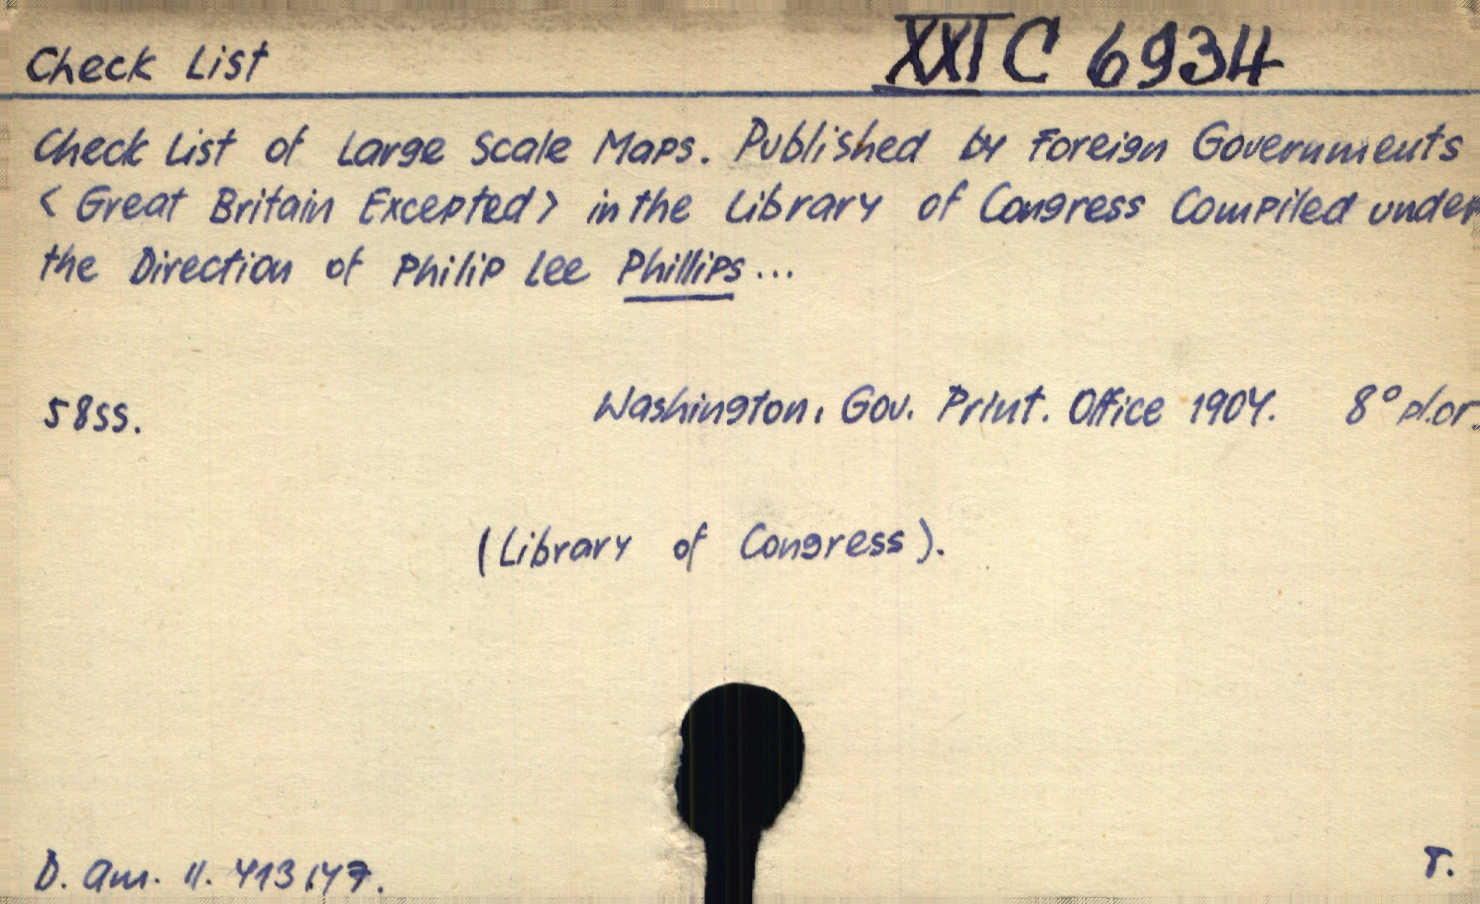 Check List XXI C 6934
Check List of Large Scale Maps. Published by Foreign Governments
< Great Britain Excepted > in the Library of Congress Compiled under
the Direction of Philip Lee Phillips...
58 SS. Washington, Gov. Print. Office 1904. 8° pl.or.
(Library of Congress).
D. am. 11. 413/47. T.